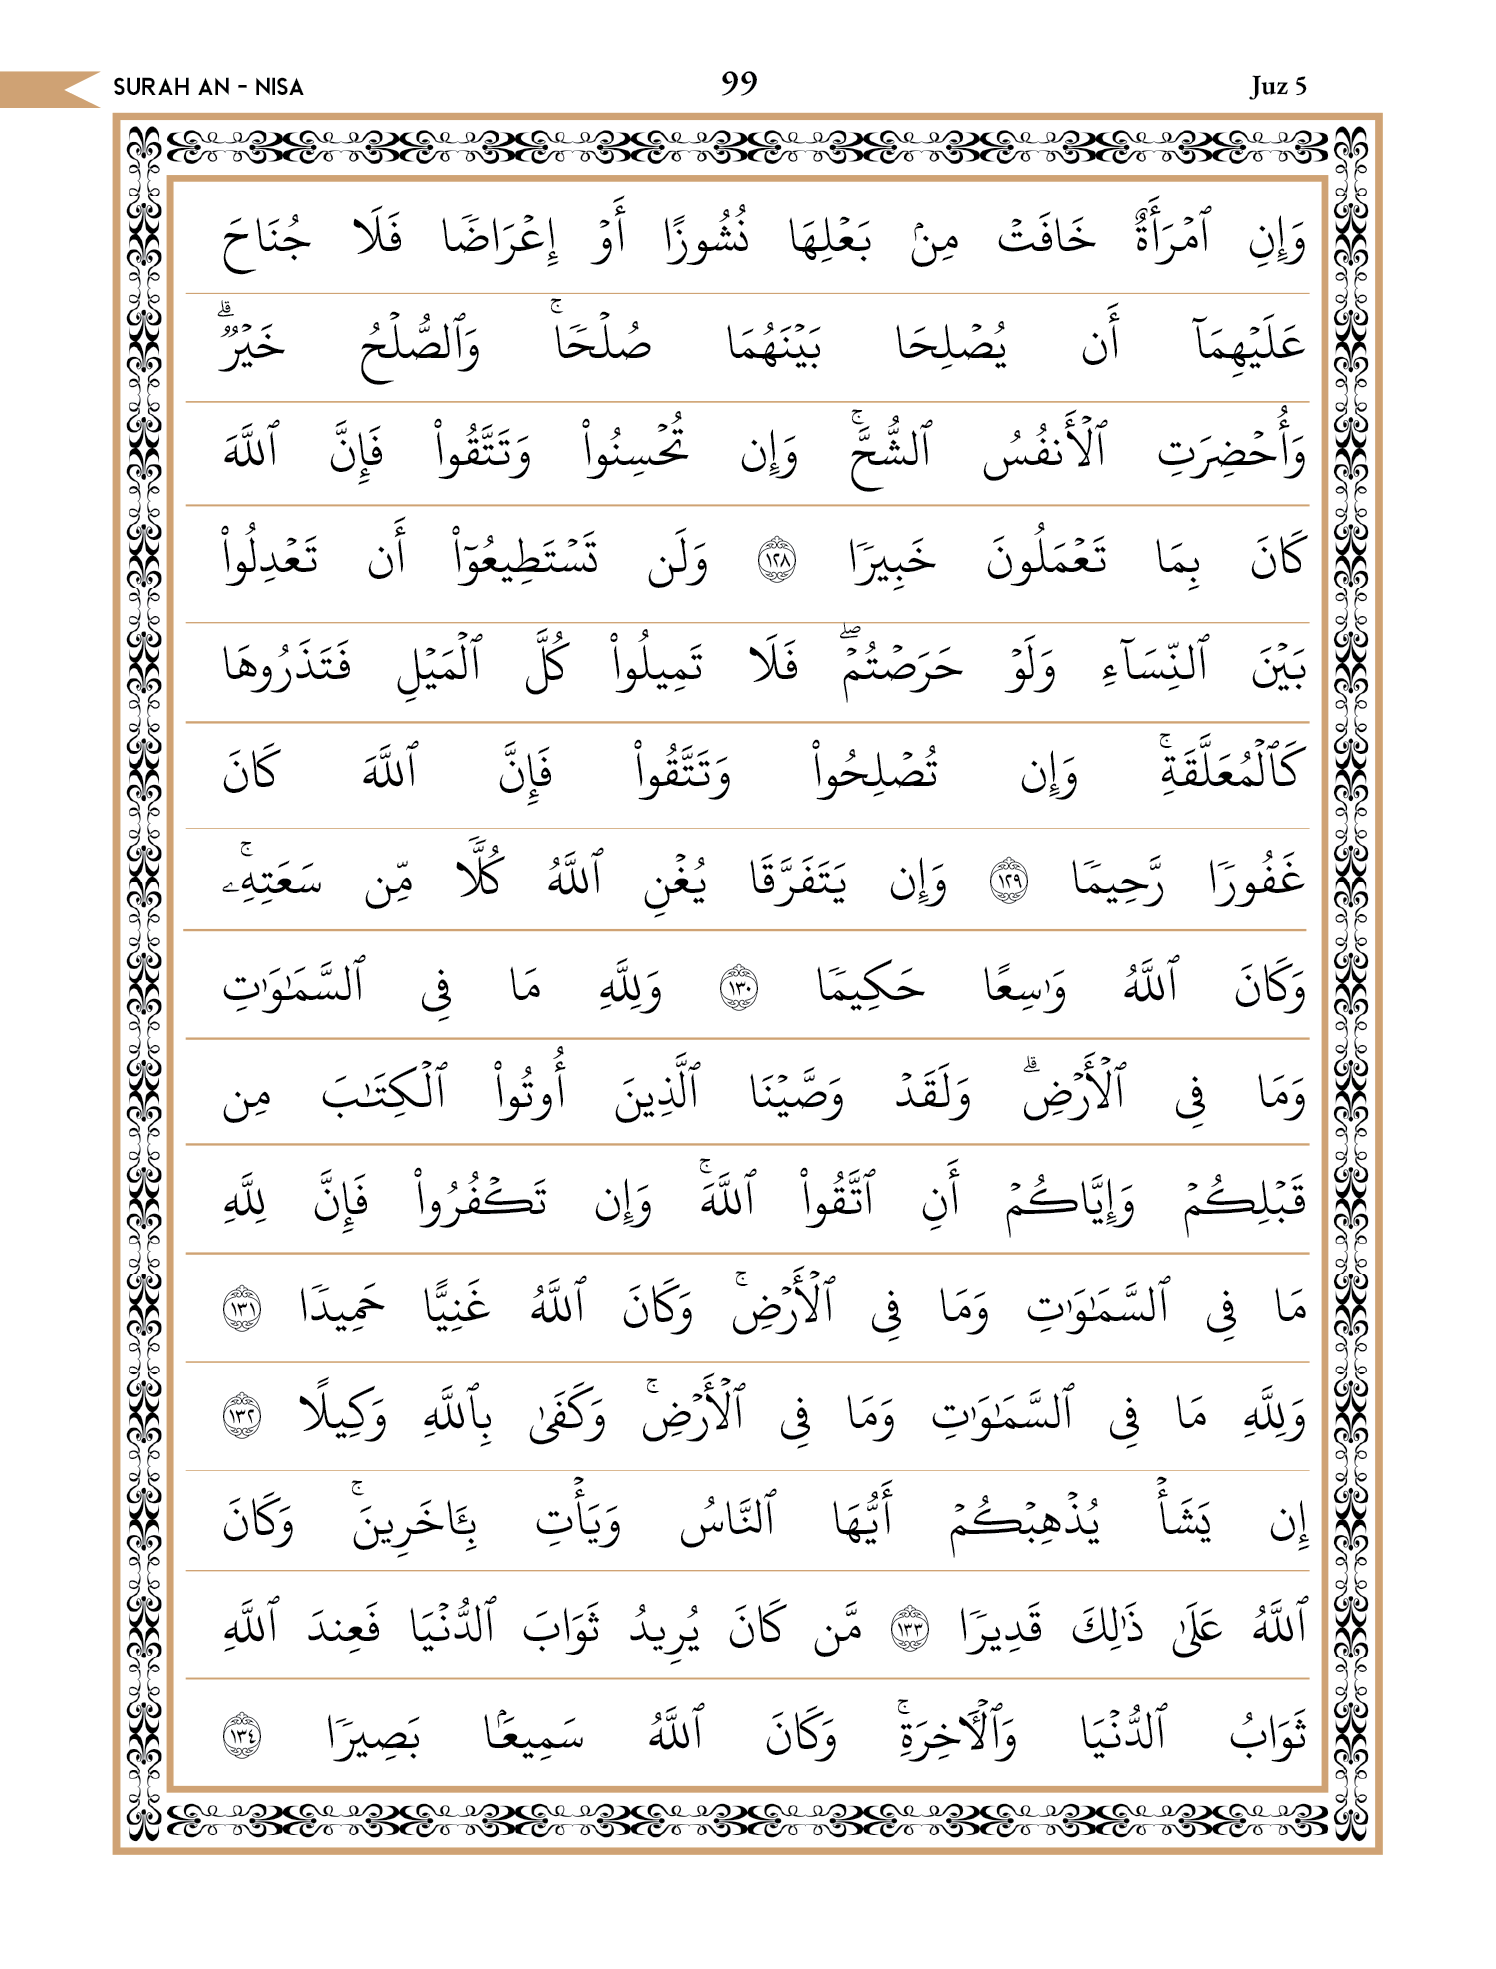 SURAH AN - NISA 99 Juz 5
وَإِنِ ٱمْرَأَةٌ خَافَتْ مِنۢ بَعْلِهَا نُشُوزًا أَوْ إِعْرَاضًا فَلَا جُنَاحَ
عَلَيْهِمَآ أَن يُصْلِحَا بَيْنَهُمَا صُلْحًا ۚ وَٱلصُّلْحُ خَيْرٌ ۗ
وَأُحْضِرَتِ ٱلْأَنفُسُ ٱلشُّحَّ ۚ وَإِن تُحْسِنُوا۟ وَتَتَّقُوا۟ فَإِنَّ ٱللَّهَ
كَانَ بِمَا تَعْمَلُونَ خَبِيرًا ١٢٨ وَلَن تَسْتَطِيعُوٓا۟ أَن تَعْدِلُوا۟
بَيْنَ ٱلنِّسَآءِ وَلَوْ حَرَصْتُمْ ۖ فَلَا تَمِيلُوا۟ كُلَّ ٱلْمَيْلِ فَتَذَرُوهَا
كَٱلْمُعَلَّقَةِ ۚ وَإِن تُصْلِحُوا۟ وَتَتَّقُوا۟ فَإِنَّ ٱللَّهَ كَانَ
غَفُورًا رَّحِيمًا ١٢٩ وَإِن يَتَفَرَّقَا يُغْنِ ٱللَّهُ كُلًّا مِّن سَعَتِهِۦ ۚ
وَكَانَ ٱللَّهُ وَٰسِعًا حَكِيمًا ١٣٠ وَلِلَّهِ مَا فِى ٱلسَّمَٰوَٰتِ
وَمَا فِى ٱلْأَرْضِ ۗ وَلَقَدْ وَصَّيْنَا ٱلَّذِينَ أُوتُوا۟ ٱلْكِتَٰبَ مِن
قَبْلِكُمْ وَإِيَّاكُمْ أَنِ ٱتَّقُوا۟ ٱللَّهَ ۚ وَإِن تَكْفُرُوا۟ فَإِنَّ لِلَّهِ
مَا فِى ٱلسَّمَٰوَٰتِ وَمَا فِى ٱلْأَرْضِ ۚ وَكَانَ ٱللَّهُ غَنِيًّا حَمِيدًا ١٣١
وَلِلَّهِ مَا فِى ٱلسَّمَٰوَٰتِ وَمَا فِى ٱلْأَرْضِ ۚ وَكَفَىٰ بِٱللَّهِ وَكِيلًا ١٣٢
إِن يَشَأْ يُذْهِبْكُمْ أَيُّهَا ٱلنَّاسُ وَيَأْتِ بِـَٔاخَرِينَ ۚ وَكَانَ
ٱللَّهُ عَلَىٰ ذَٰلِكَ قَدِيرًا ١٣٣ مَّن كَانَ يُرِيدُ ثَوَابَ ٱلدُّنْيَا فَعِندَ ٱللَّهِ
ثَوَابُ ٱلدُّنْيَا وَٱلْـَٔاخِرَةِ ۚ وَكَانَ ٱللَّهُ سَمِيعًۢا بَصِيرًا ١٣٤